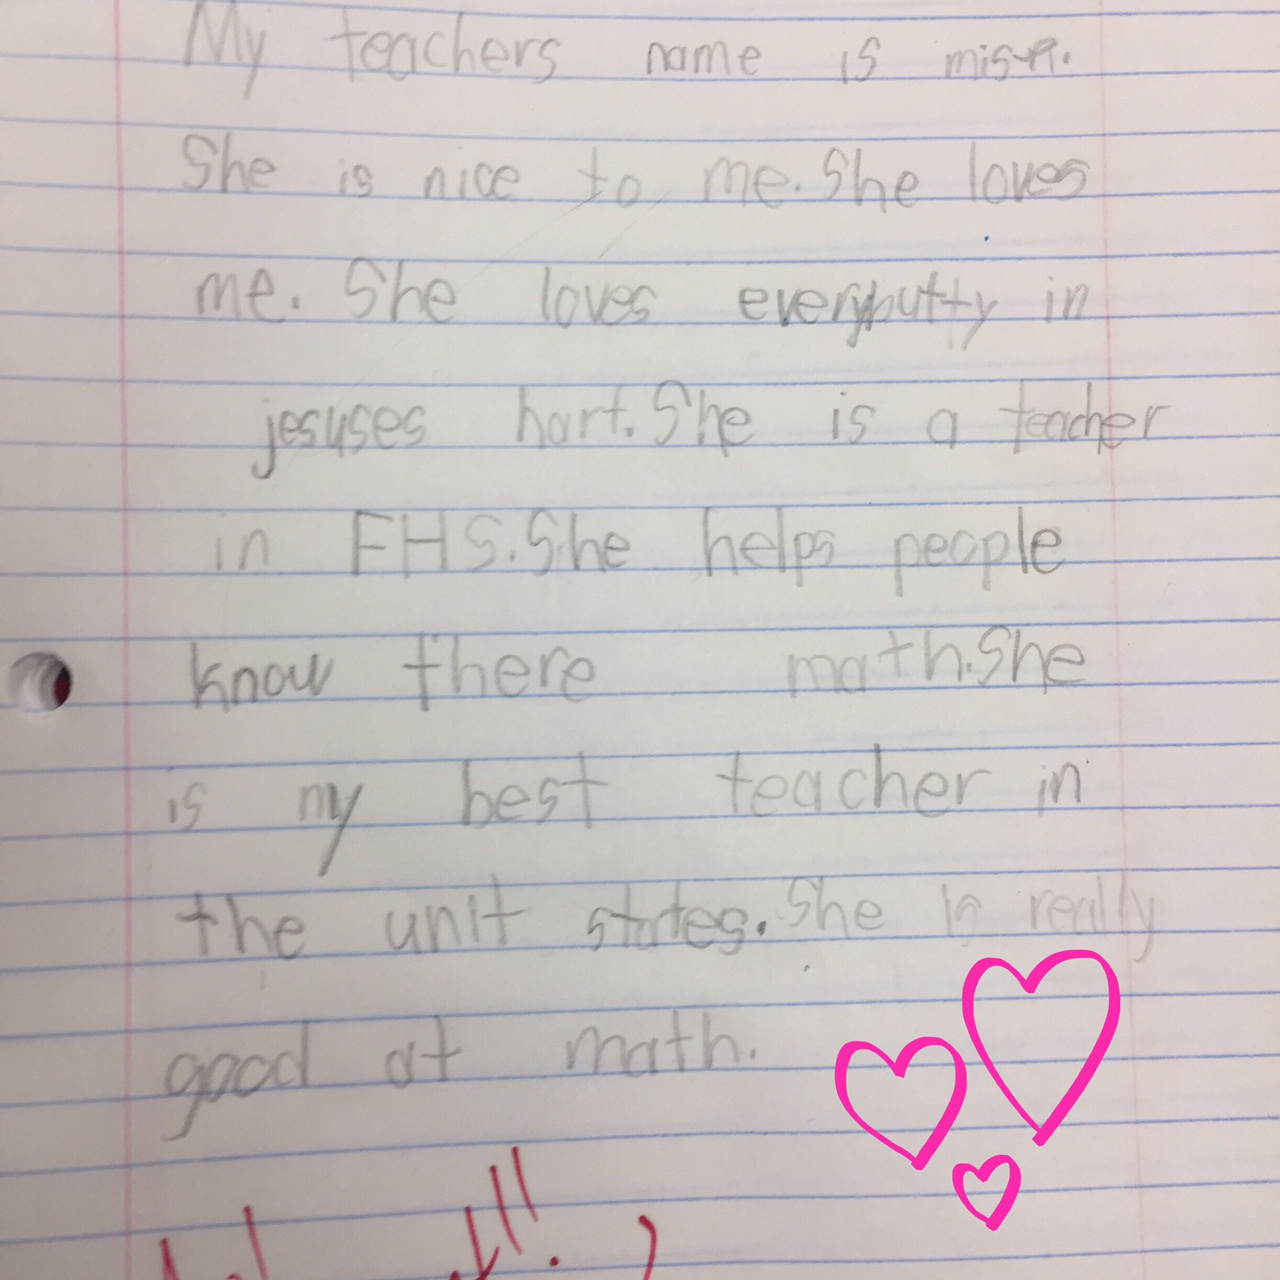 My teachers name is
She is nice to me. She loves
me. She loves everybutty in
jesuses hart. She is a teacher
in FHS. She helps people
know there math. She
is my best teacher in
the unit states. She is really
good at math.